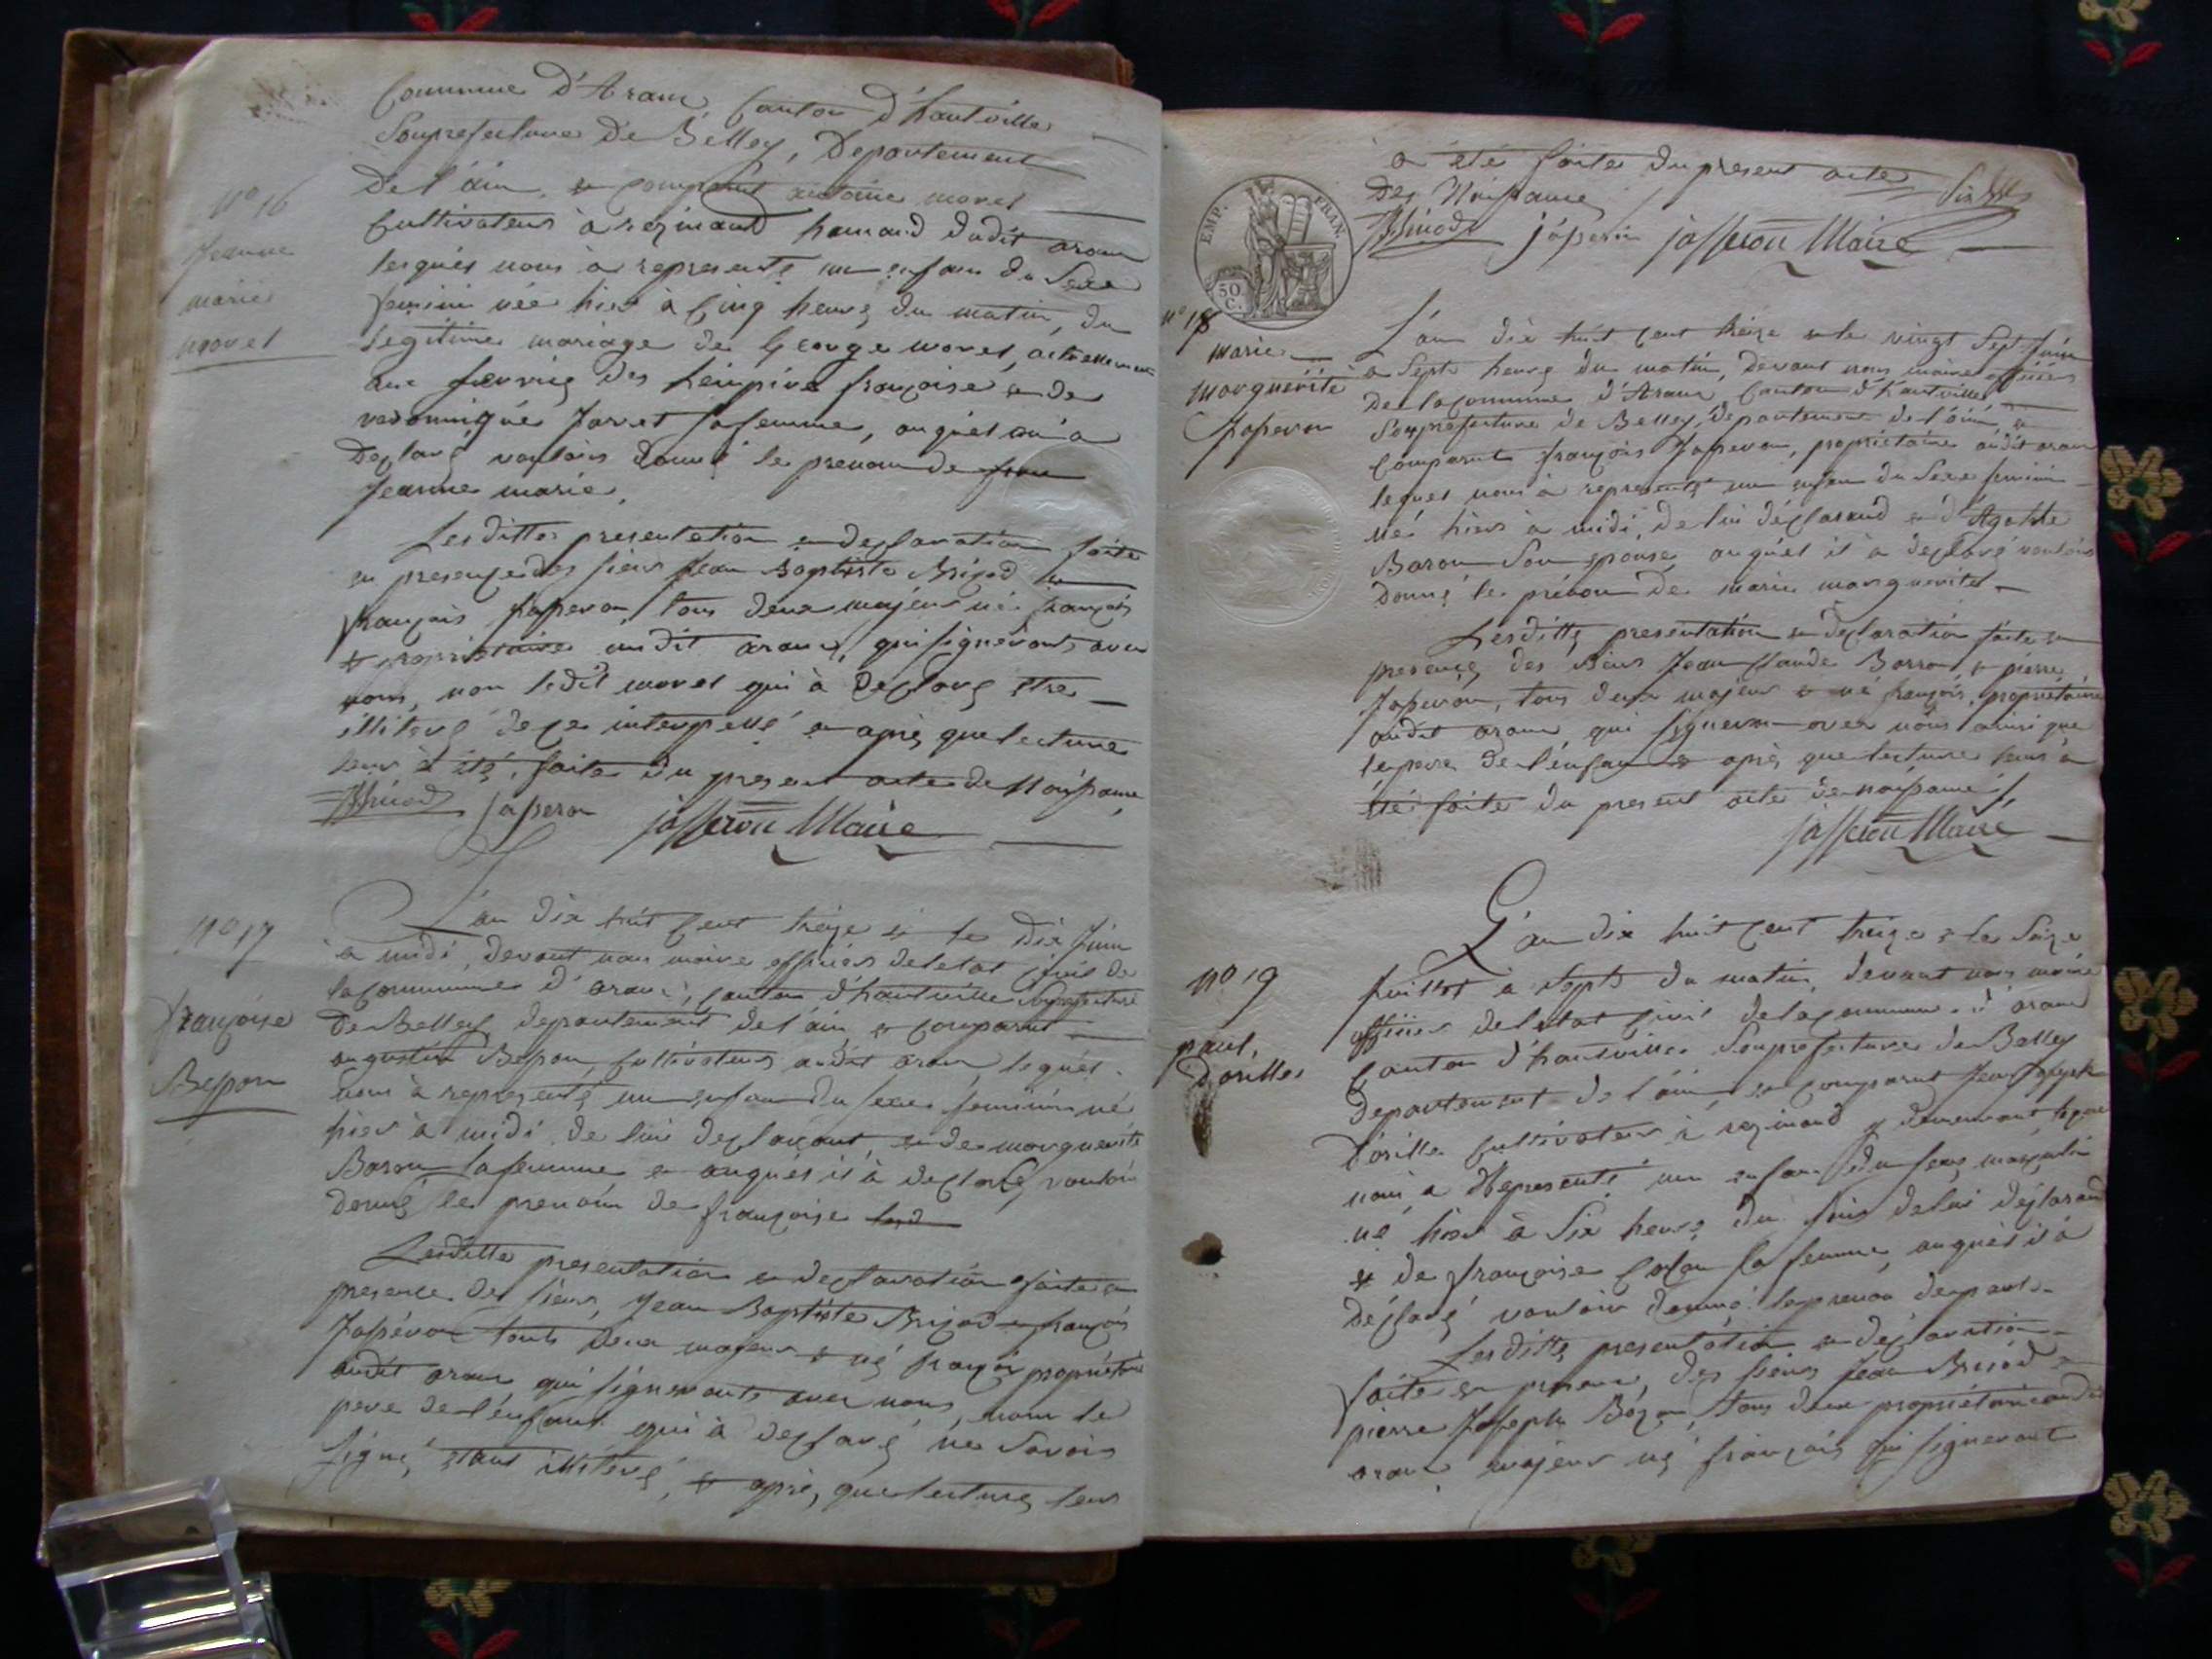 Commune D'Aranc, Canton D'hautville
Souprefecture De Belley, Departement
De l'ain, et comparut antoine morel
N° 16
Jeanne
marie
morel
Cultivateur à rezinand hamand dudit aranc
lequel nous à representé un enfant du Sexe
feminin née hier à Cinq heures du matin, du
legitime mariage de George morel, actuellement
aux services des Troupes françoise et de
Jarret sa femme, auquel on à
Declaré vouloir donné le prenom de
Jeanne marie.
Lesdittes presentation et declaration faite
en presence des sieurs Jean Baptiste Brigod et
françois Japeron, tous deux majeurs né françois
et proprietaires audit aranc, qui signeronts avec
nous, non ledit morel qui à Declaré être
illiteré de ce interpellé et après que lecture
leurs à été faite du present acte de Naissance,
JBrigod japeron jasseron Maire
N° 17
Françoise
Bepon
L'an dix huit Cent treize et le Dix Juin
à midi, devant nous maire officier de l'etat civil de
la Commune d'aranc, Canton d'hautville Souprefecture
De Belley, departement de l'ain et comparut
augustin Bepon, Cultivateur audit aranc, lequel
nous à representé un enfant du sexe feminin né
hier à midi de lui declarant, et de marguerite
Baron sa femme et auquel il à declaré vouloir
donné le prenom de françoise
Lesditte presentation et declaration faite en
presence des sieurs Jean Baptiste Brigod et françois
Japéron touts deux majeurs et né françois proprietaire
audit aranc qui signeronts avec nous, non le
pere de l'enfant qui à declaré ne savoir
signé étant illiteré, et après que lecture leur
EMP. FRAN.
50
C.
a été faite du present acte
Des Naissance
JBrigod japeron jasseron Maire
N° 18
marie
marguérite
Japeron
L'an dix huit cent treize et le vingt Sept Juin
à Sept heures du matin, Devant nous maire officier
De la Commune d'Aranc, Canton d'hautville,
Souprefecture de Belley, departement de l'ain, et
Comparut françois Japeron, propriétaire audit aranc
lequel nous à representé un enfant du Sexe feminin
né hier à midi, de lui déclarand et d'Agathe
Baron Son epouse, auquel il à declaré vouloir
Donné le prénom de marie marguerite
Lesditts presentation et declaration faite en
presence des sieurs Jean Claude Barron et pierre
Japeron, tous deux majeurs et né françois, propriétaires
audit aranc, qui signeron avec nous ainsi que
le pere de l'enfant et après que lecture leurs à
été faite du present acte de naissance
jasseron Maire
N° 19
paul,
Dorille
L'an dix huit Cent treize et le Seize
Juillet à Septs du matin devant nous maire
officier de l'etat civil de la commune d'aranc
Canton d'hautville Souprefecture de Belley
departement de l'ain et comparut Jean Joseph
Dorille Cultivateur à rezinand y demeurant, lequel
nous a Representé un enfant du sexe masculin
né hier à Six heures du soir de lui declarand
et de françoise sa femme, auquel il à
déclaré vouloir donné le prenom de paul.
Lesditts presentation et declaration
faite en presence des sieurs Jean Brigod et
pierre Joseph Bozon, tous deux propriétaire audit
aranc majeurs né françois qui signeront